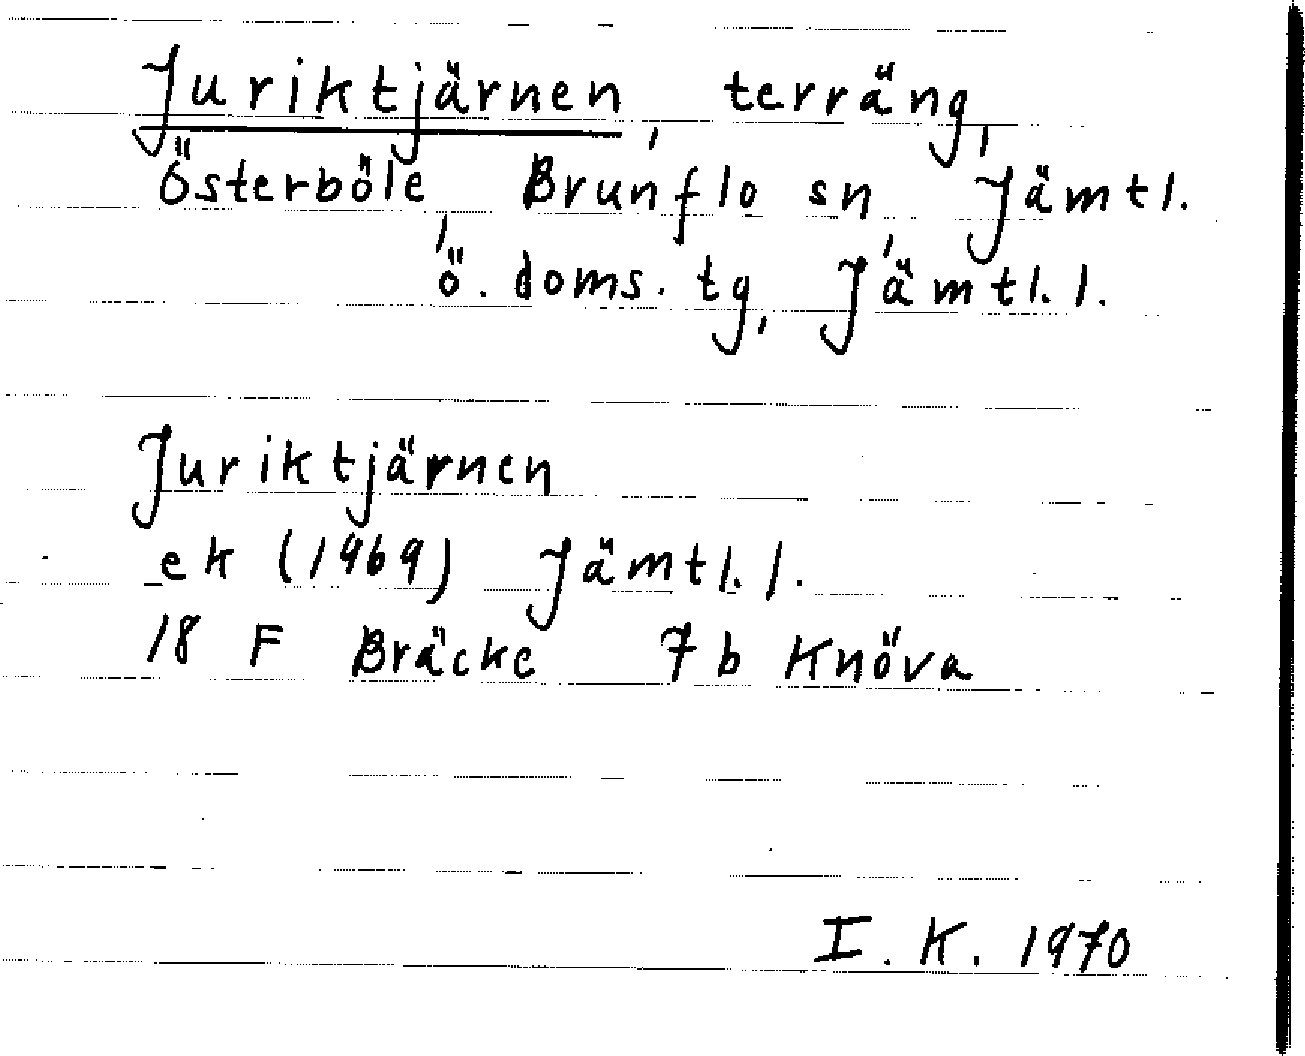 Juriktjärnen, terräng,
Österböle, Brunflo sn, Jämtl.
ö. doms. tg, Jämtl. l.
Juriktjärnen
ek (1969) Jämtl. l.
18 F Bräcke 7 b Knöva
I. K. 1970